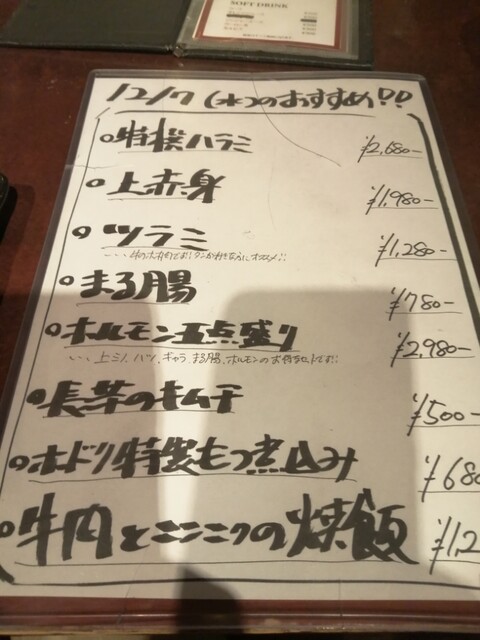 SOFT DRINK
12/7 (水)のおすすめ!!
特選ハラミ ¥2,680-
上赤身 ¥1,980-
ツラミ ¥1,280-
まる腸 ¥780-
ホルモン五点盛り ¥2,980-
上ミノ、ハツ、ギャラ、まる腸、ホルモンのお得なセットです!!
長芋のキムチ ¥500-
ホドリ特製もつ煮込み ¥680
牛肉とニンニクの炒飯 ¥1,2